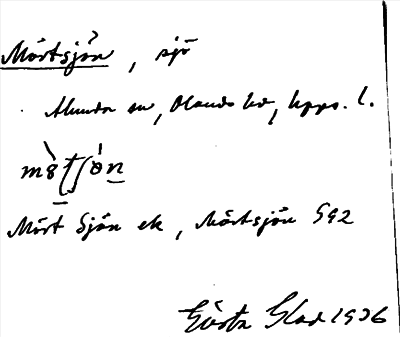 Mörtsjön, sjö
Alunda sn, Olands hd, Upps. l.
Mört Sjön ek, Mörtsjön S92
Gösta Glad 1936